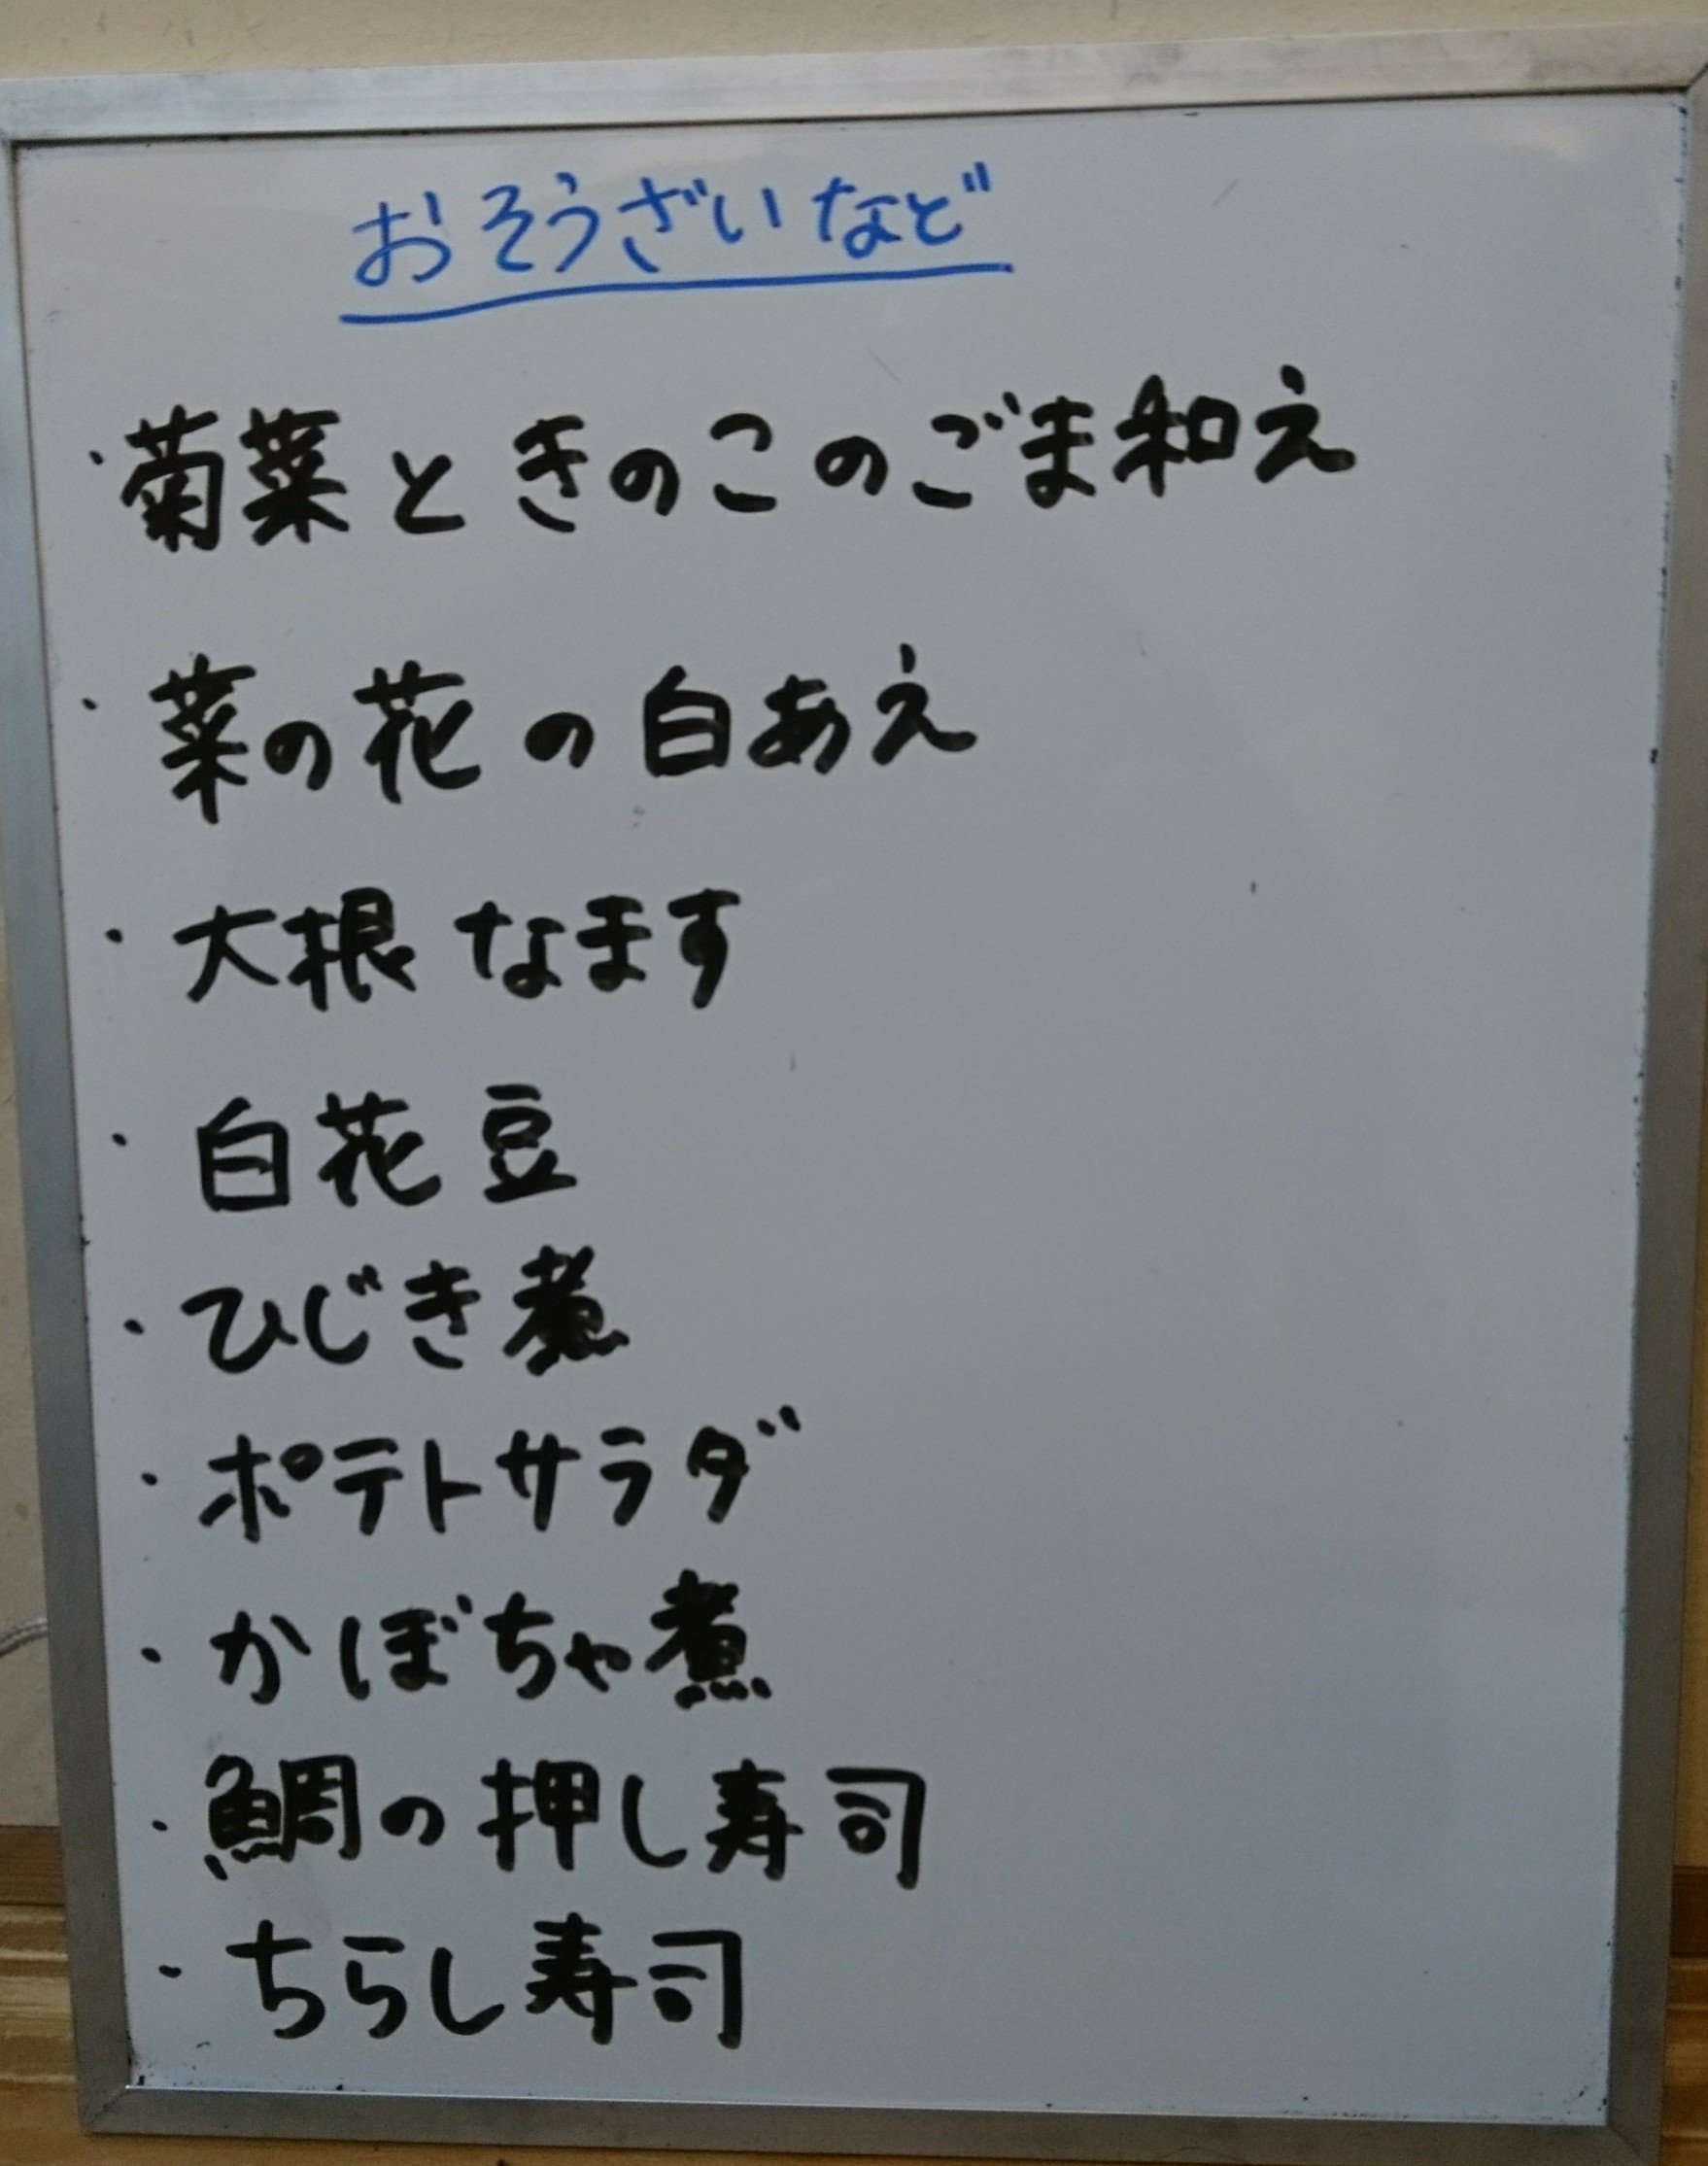 おそうざいなど
・菊菜ときのこのごま和え
・菜の花の白あえ
・大根なます
・白花豆
・ひじき煮
・ポテトサラダ
・かぼちゃ煮
・鯛の押し寿司
・ちらし寿司